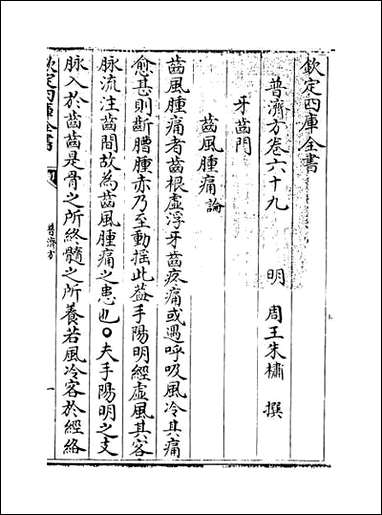 欽定四庫全書
普濟方卷六十九
明 周王朱橚 撰
牙齒門
齒風腫痛論
齒風腫痛者齒根虛浮牙齒疼痛或遇呼吸風冷其痛
愈甚則齗腫赤乃至動揺此葢手陽明經虛風其客
脉流注齒間故為齒風腫痛之患也○夫手陽明之支
脉入於齒齒是骨之所終髓之所養若風冷客於經絡
欽定四庫全書
普濟方
一